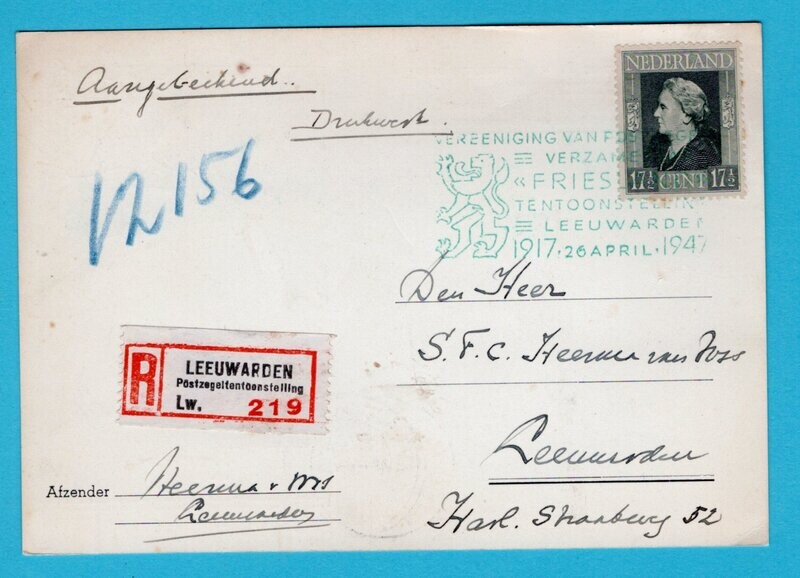 Aangetekend..
Drukwerk.
NEDERLAND
17½ CENT 17½
VEREENIGING VAN
VERZAME
«FRIES
TENTOONSTELLIN
LEEUWARDEN
1917.26 APRIL.1947
156
Den Heer
S. F. C. Heerma van Voss
Leeuwarden
Karl. Straatweg 52
R
LEEUWARDEN
Postzegeltentoonstelling
Lw. 219
Afzender Heerma v Voss
Leeuwarden